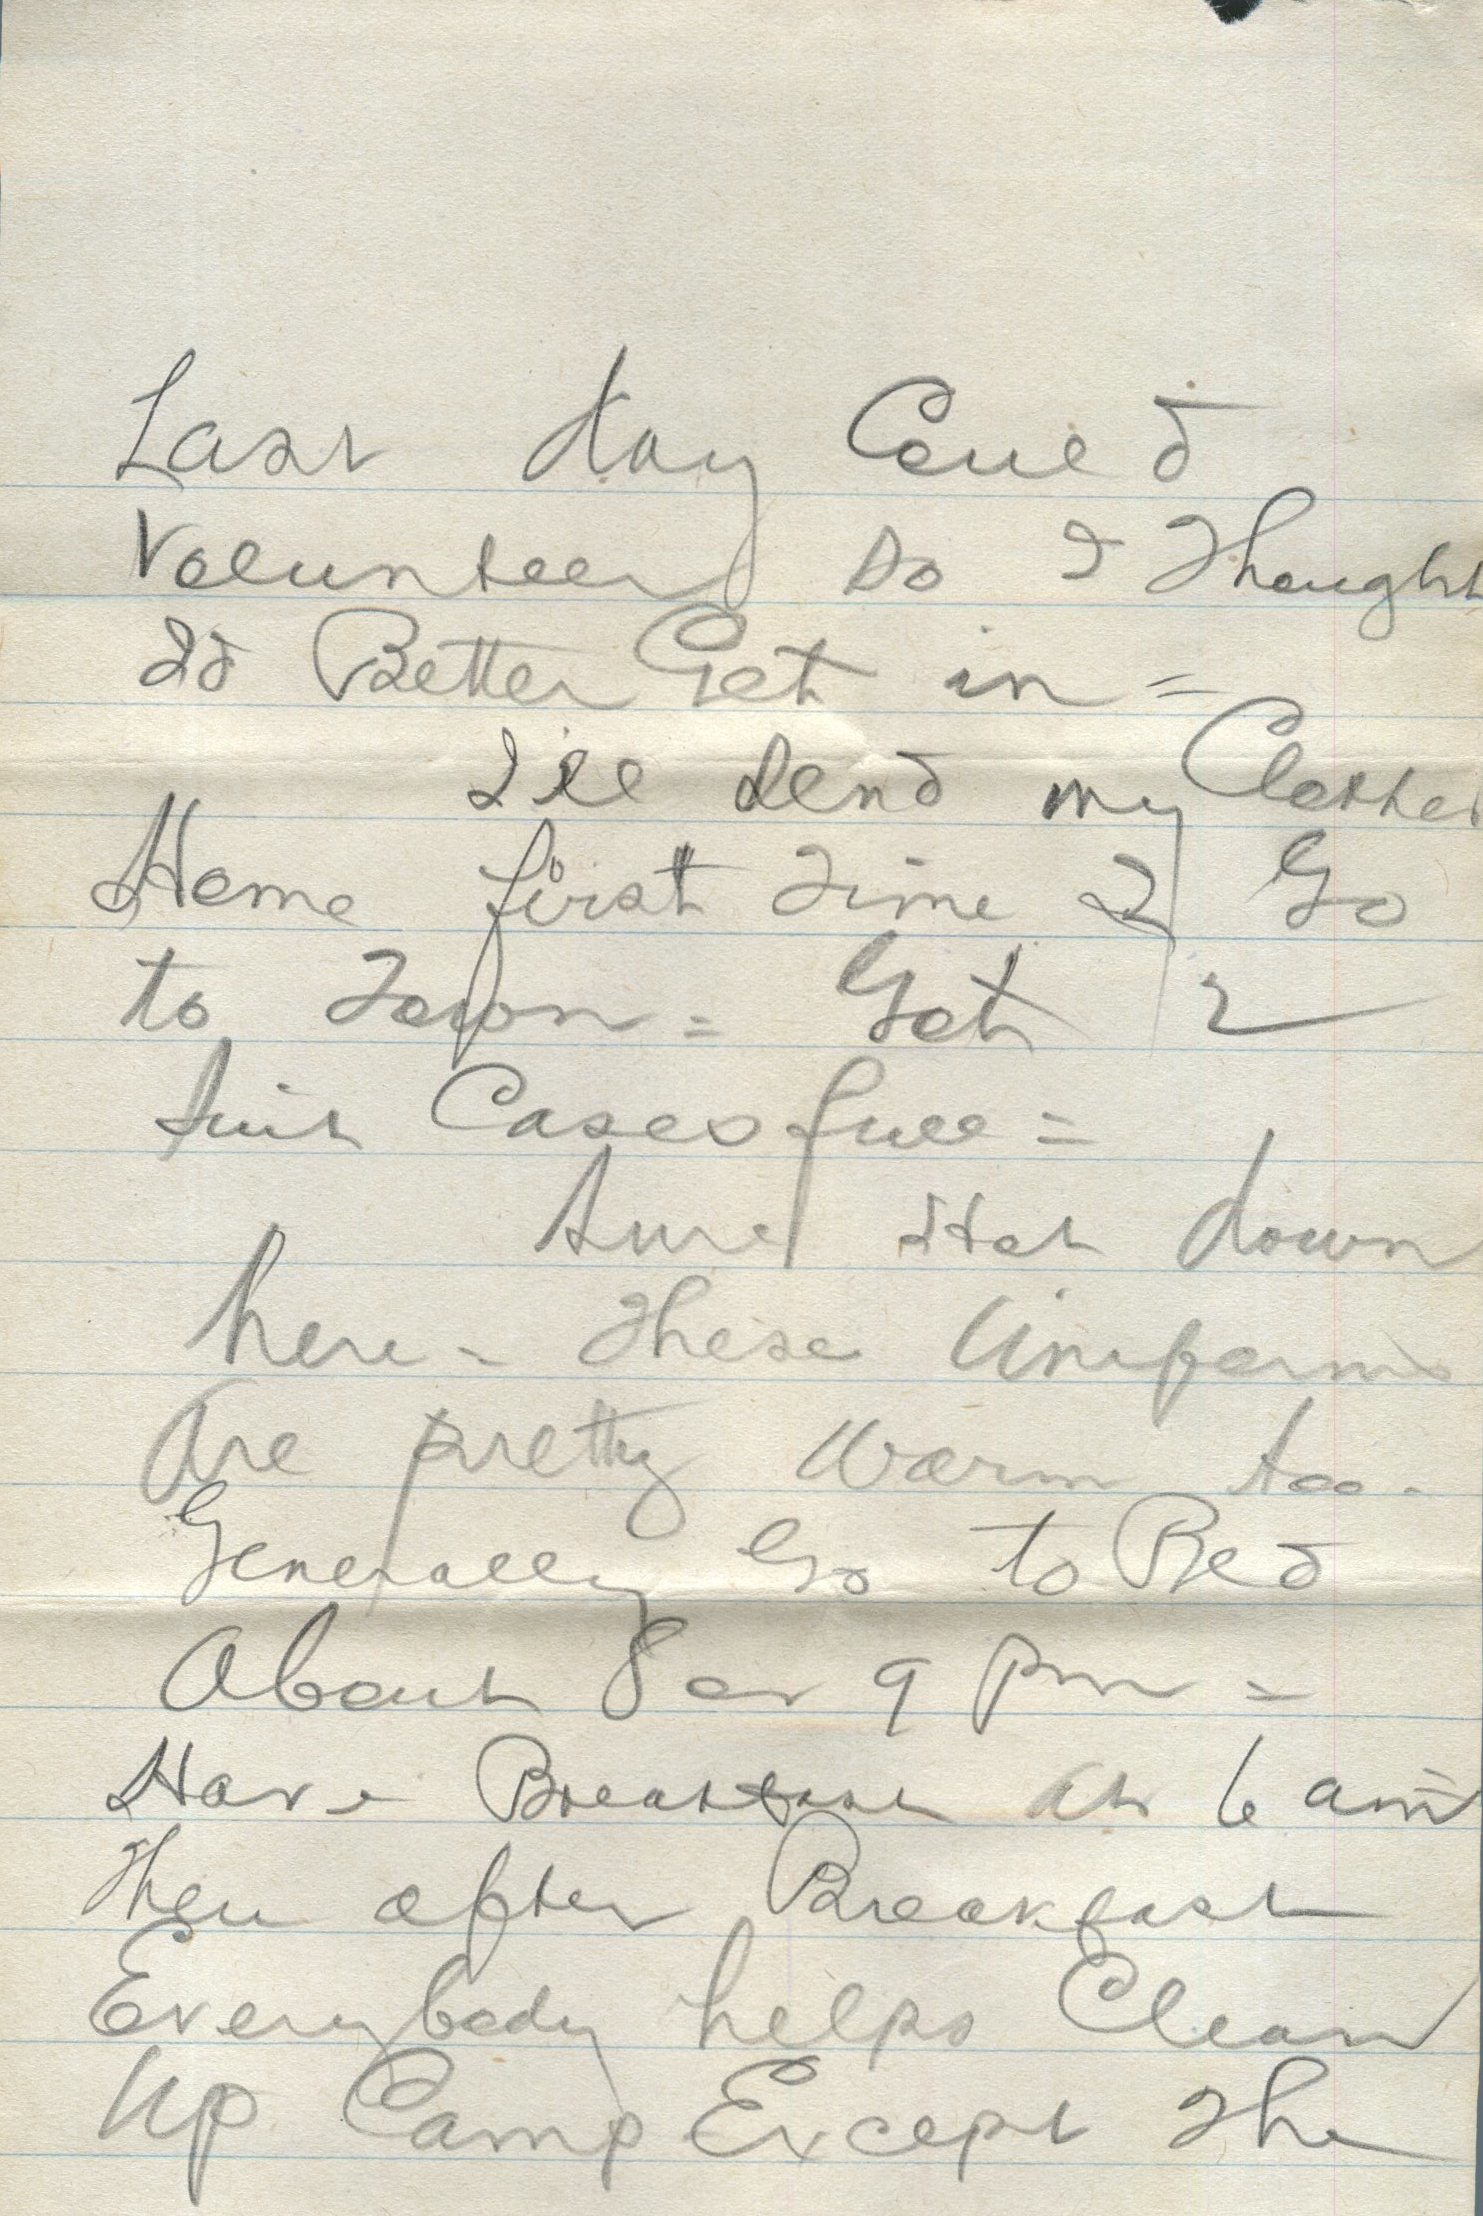 Last day Coued
Volunteer So I Thought
Id Better Get in =
I'll Send my Clothes
Home first Time I Go
to Town = Got 2
Suit Cases full =
Sure Hot down
here - These Uniforms
Are pretty Warm too.
Generally Go to Bed
About 8 or 9 Pm =
Have Breakfast At 6 am =
Then after Breakfast
Everybody helps Clean
Up Camp Except The